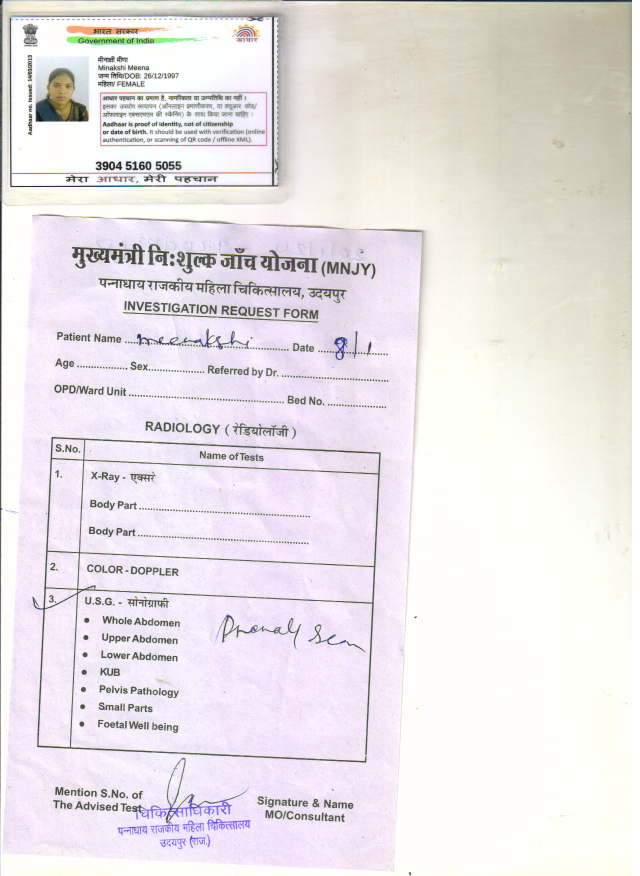 भारत सरकार
Government of India
आधार
Aadhaar no. issued: 14/03/2013
मीनाक्षी मीणा
Minakshi Meena
जन्म तिथि/DOB: 26/12/1997
महिला/ FEMALE
आधार पहचान का प्रमाण है, नागरिकता या जन्मतिथि का नहीं ।
इसका उपयोग सत्यापन (ऑनलाइन प्रमाणीकरण, या क्यूआर कोड/
ऑफलाइन एक्सएमएल की स्कैनिंग) के साथ किया जाना चाहिए ।
Aadhaar is proof of identity, not of citizenship
or date of birth. It should be used with verification (online
authentication, or scanning of QR code / offline XML).
3904 5160 5055
मेरा आधार, मेरी पहचान
मुख्यमंत्री नि:शुल्क जाँच योजना (MNJY)
पन्नाधाय राजकीय महिला चिकित्सालय, उदयपुर
INVESTIGATION REQUEST FORM
Patient Name meenakshi Date 8/1
Age Sex Referred by Dr.
OPD/Ward Unit Bed No.
RADIOLOGY ( रेडियोलॉजी )
S.No. Name of Tests
1. X-Ray - एक्सरे
Body Part
Body Part
2. COLOR - DOPPLER
3. U.S.G. - सोनोग्राफी
• Whole Abdomen
• Upper Abdomen
• Lower Abdomen
• KUB
• Pelvis Pathology
• Small Parts
• Foetal Well being
Mention S.No. of
The Advised Test
Signature & Name
MO/Consultant
चिकित्साधिकारी
पन्नाधाय राजकीय महिला चिकित्सालय
उदयपुर (राज.)